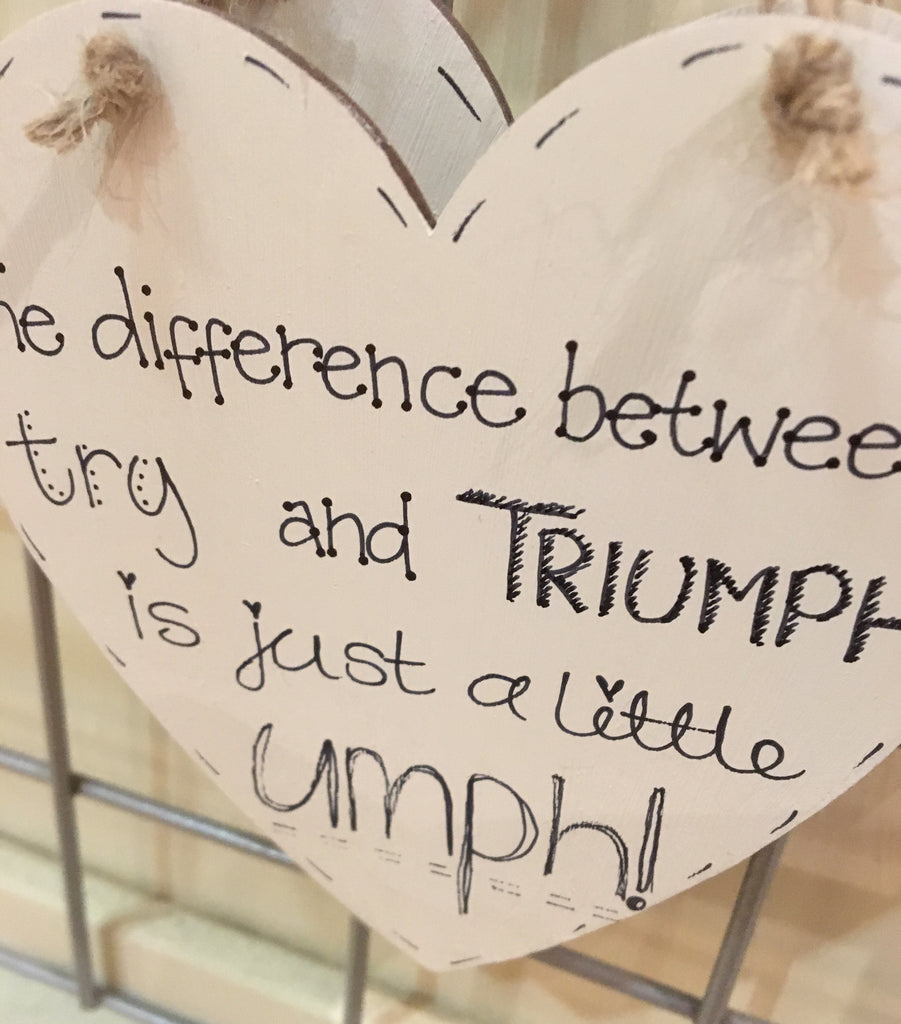 he difference betwee
try and TRIUMPH
is just a little
umph!